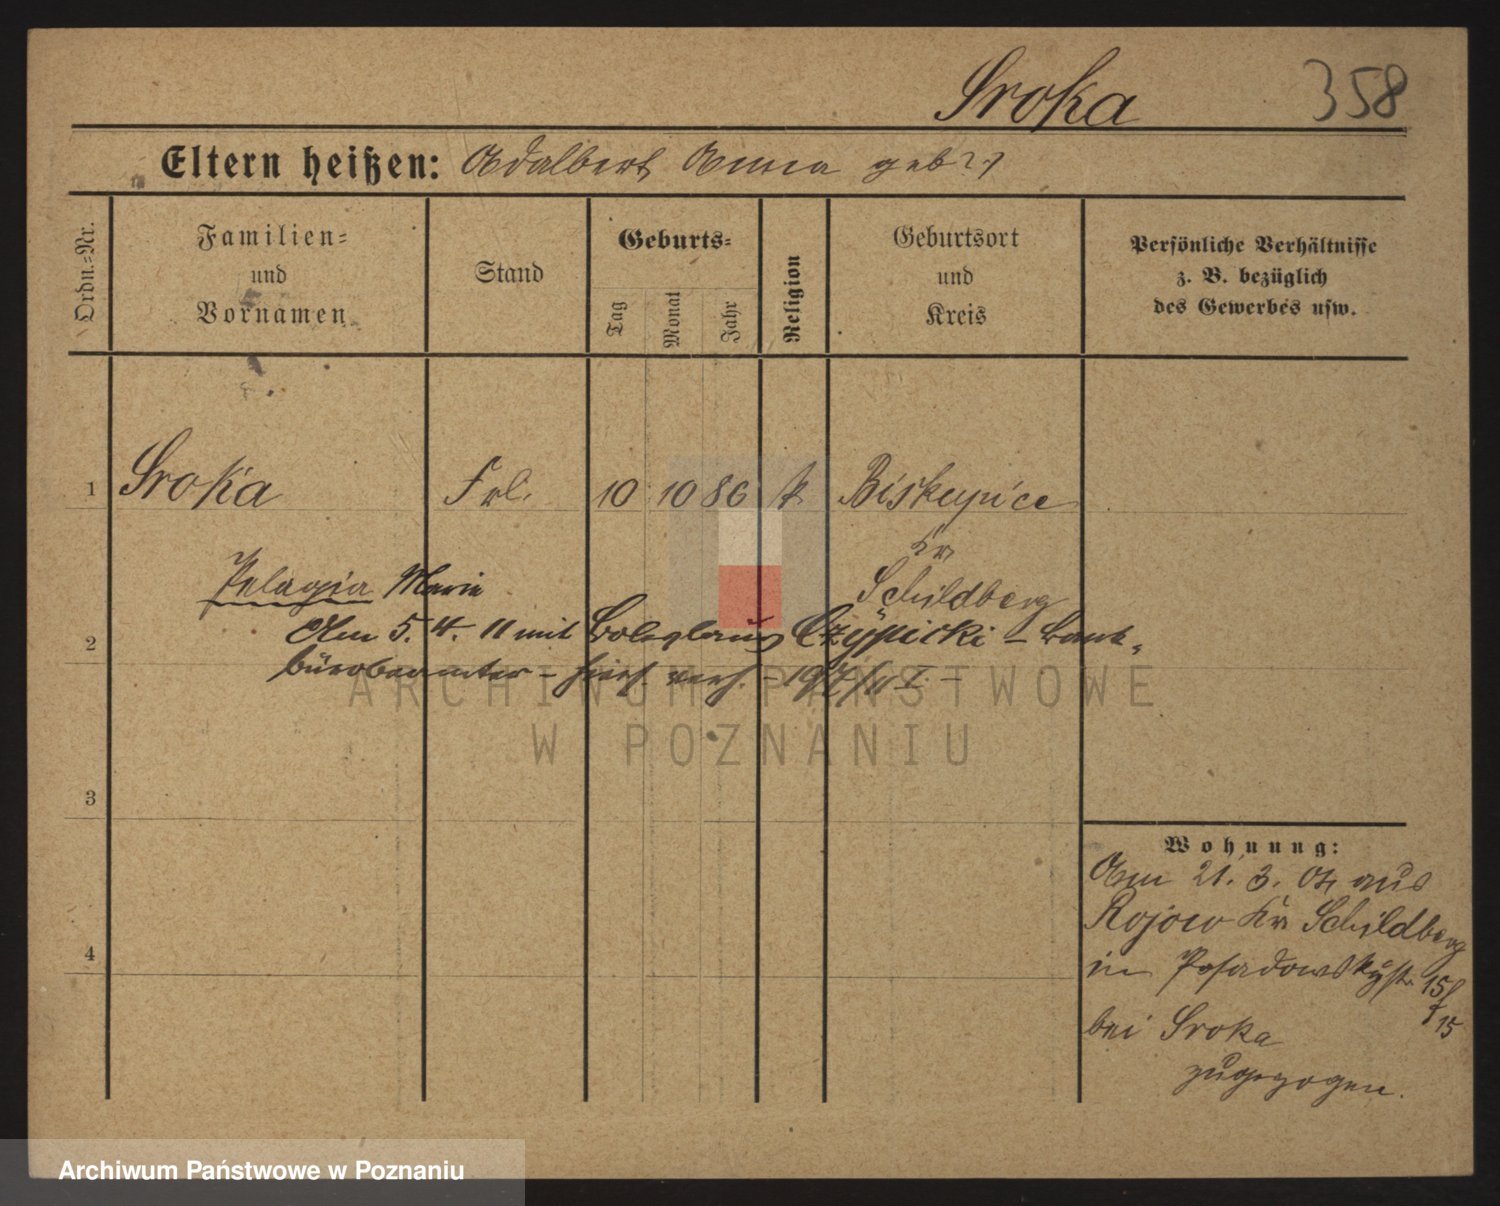 Sroka 358
Eltern heißen: Adalbert Anna geb ?.)
Ordn.=Nr.
Familien=
und
Vornamen
Stand
Geburts=
Tag
Monat
Jahr
Religion
Geburtsort
und
Kreis
Persönliche Verhältnisse
z. B. bezüglich
des Gewerbes usw.
1 Sroka Frl. 10 10 86 k Biskupice
Kr
Schildberg
Pelagia Marie
2 Am 5. 4. 11 mit Boleslaus Czypicki – Bank-
bürobeamter – hies. verh. – 197/11 I. –
3
4
Wohnung:
Am 21. 3. 04 aus
Rojow Kr Schildberg
in Posadowskystr. 15
15
bei Sroka
zugezogen.
ARCHIWUM PAŃSTWOWE
W POZNANIU
Archiwum Państwowe w Poznaniu